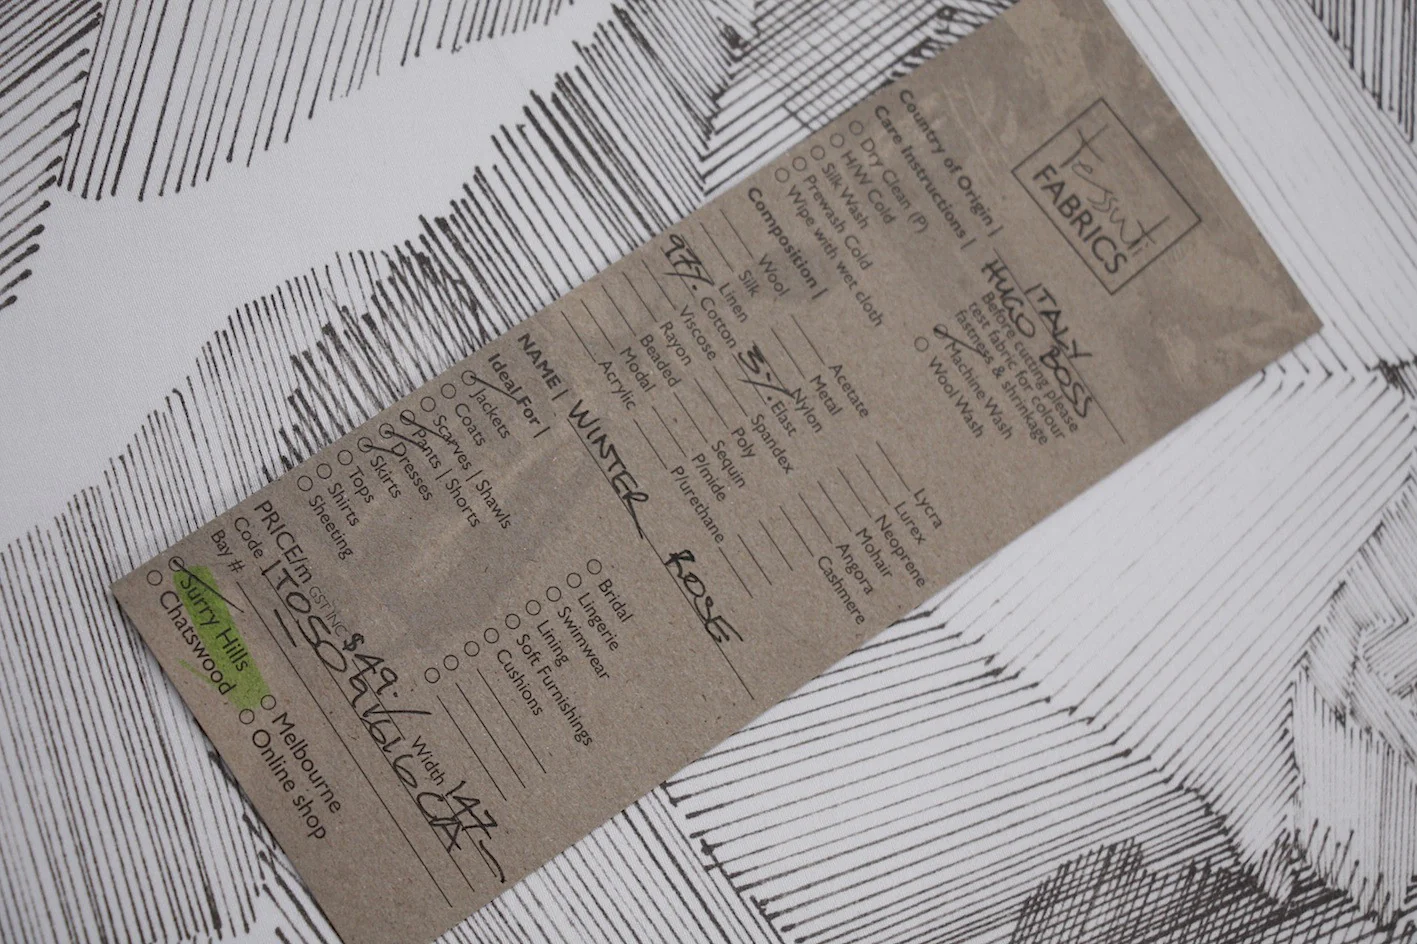 tessuti
FABRICS
Country of Origin | ITALY
HUGO BOSS
Care Instructions | Before cutting please
test fabric for colour
fastness & shrinkage
Dry Clean (P) Machine Wash
H/W Cold Wool Wash
Silk Wash
Prewash Cold
Wipe with wet cloth
Composition |
Wool Acetate Lycra
Silk Metal Lurex
Linen Nylon Neoprene
97% Cotton 3% Elast Mohair
Viscose Spandex Angora
Rayon Poly Cashmere
Beaded Sequin
Modal P/mide
Acrylic P/urethane
NAME | WINTER ROSE
Ideal For |
Jackets Bridal
Coats Lingerie
Scarves | Shawls Swimwear
Pants | Shorts Lining
Dresses Soft Furnishings
Skirts Cushions
Tops
Shirts
Sheeting
PRICE/m GST INC $49. Width 147
Code
Bay #
Surry Hills Melbourne
Chatswood Online shop